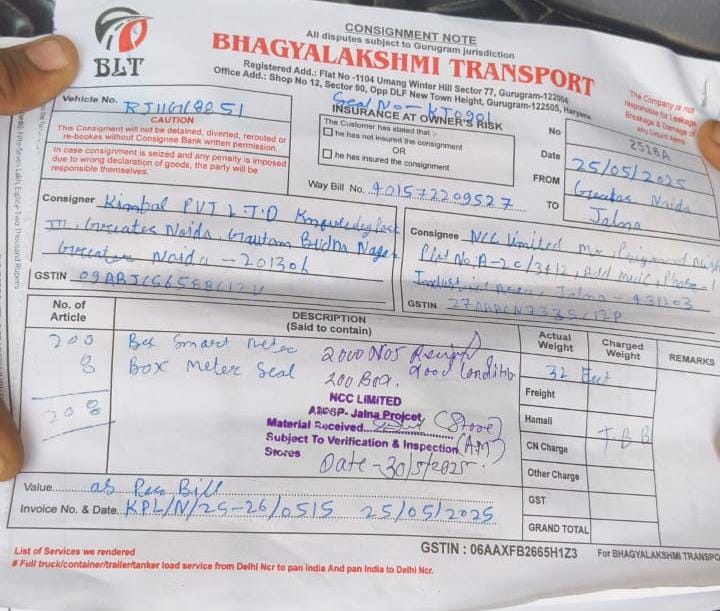 BLT
CONSIGNMENT NOTE
All disputes subject to Gurugram jurisdiction
BHAGYALAKSHMI TRANSPORT
Registered Add.: Flat No -1104 Umang Winter Hill Sector 77, Gurugram-122004
Office Add.: Shop No 12, Sector 90, Opp DLF New Town Height, Gurugram-122505, Haryana
The Company is not
responsible for Leakage
Breakage & Damage of
any Liquid Items
Vehicle No.
CAUTION
This Consignment will not be detained, diverted, rerouted or
re-bookes without Consignee Bank written permission.
In case consignment is seized and any penalty is imposed
due to wrong declaration of goods, the party will be
responsible themselves.
Seal No-
INSURANCE AT OWNER'S RISK
The Customer has stated that :-
he has not insured the consignment
OR
he has insured the consignment
Way Bill No. 401572209527
No 2516A
Date 25/05/2025
FROM Greater Noida
TO Jalna
Consignor Kimbal PVT LTD Knowledge Park
III, Greater Noida, Gautam Budha Nagar
Greater Noida - 201306
GSTIN
Consignee NCC limited
Plot No. A-20/3412, Add MIDC, Phase-1
Industrial Area, Jalna - 431203
GSTIN
No. of
Article
DESCRIPTION
(Said to contain)
Actual
Weight
Charged
Weight
REMARKS
200 Box Smart meter 2000 Nos
8 Box Meter Seal good Condition
200 Box.
208
32 Feet
NCC LIMITED
Jalna Projcet (Store)
Material Received
Subject To Verification & Inspection (AM)
Stores
Date - 30/5/2025
Freight
Hamali
CN Charge
T.B.B
Other Charge
GST
GRAND TOTAL
Value as Per Bill
Invoice No. & Date KPL/N/25-26/0515 25/05/2025
GSTIN : 06AAXFB2665H1Z3
For BHAGYALAKSHMI TRANSPO
List of Services we rendered
# Full truck/container/trailer/tanker load service from Delhi Ncr to pan india And pan India to Delhi Ncr.